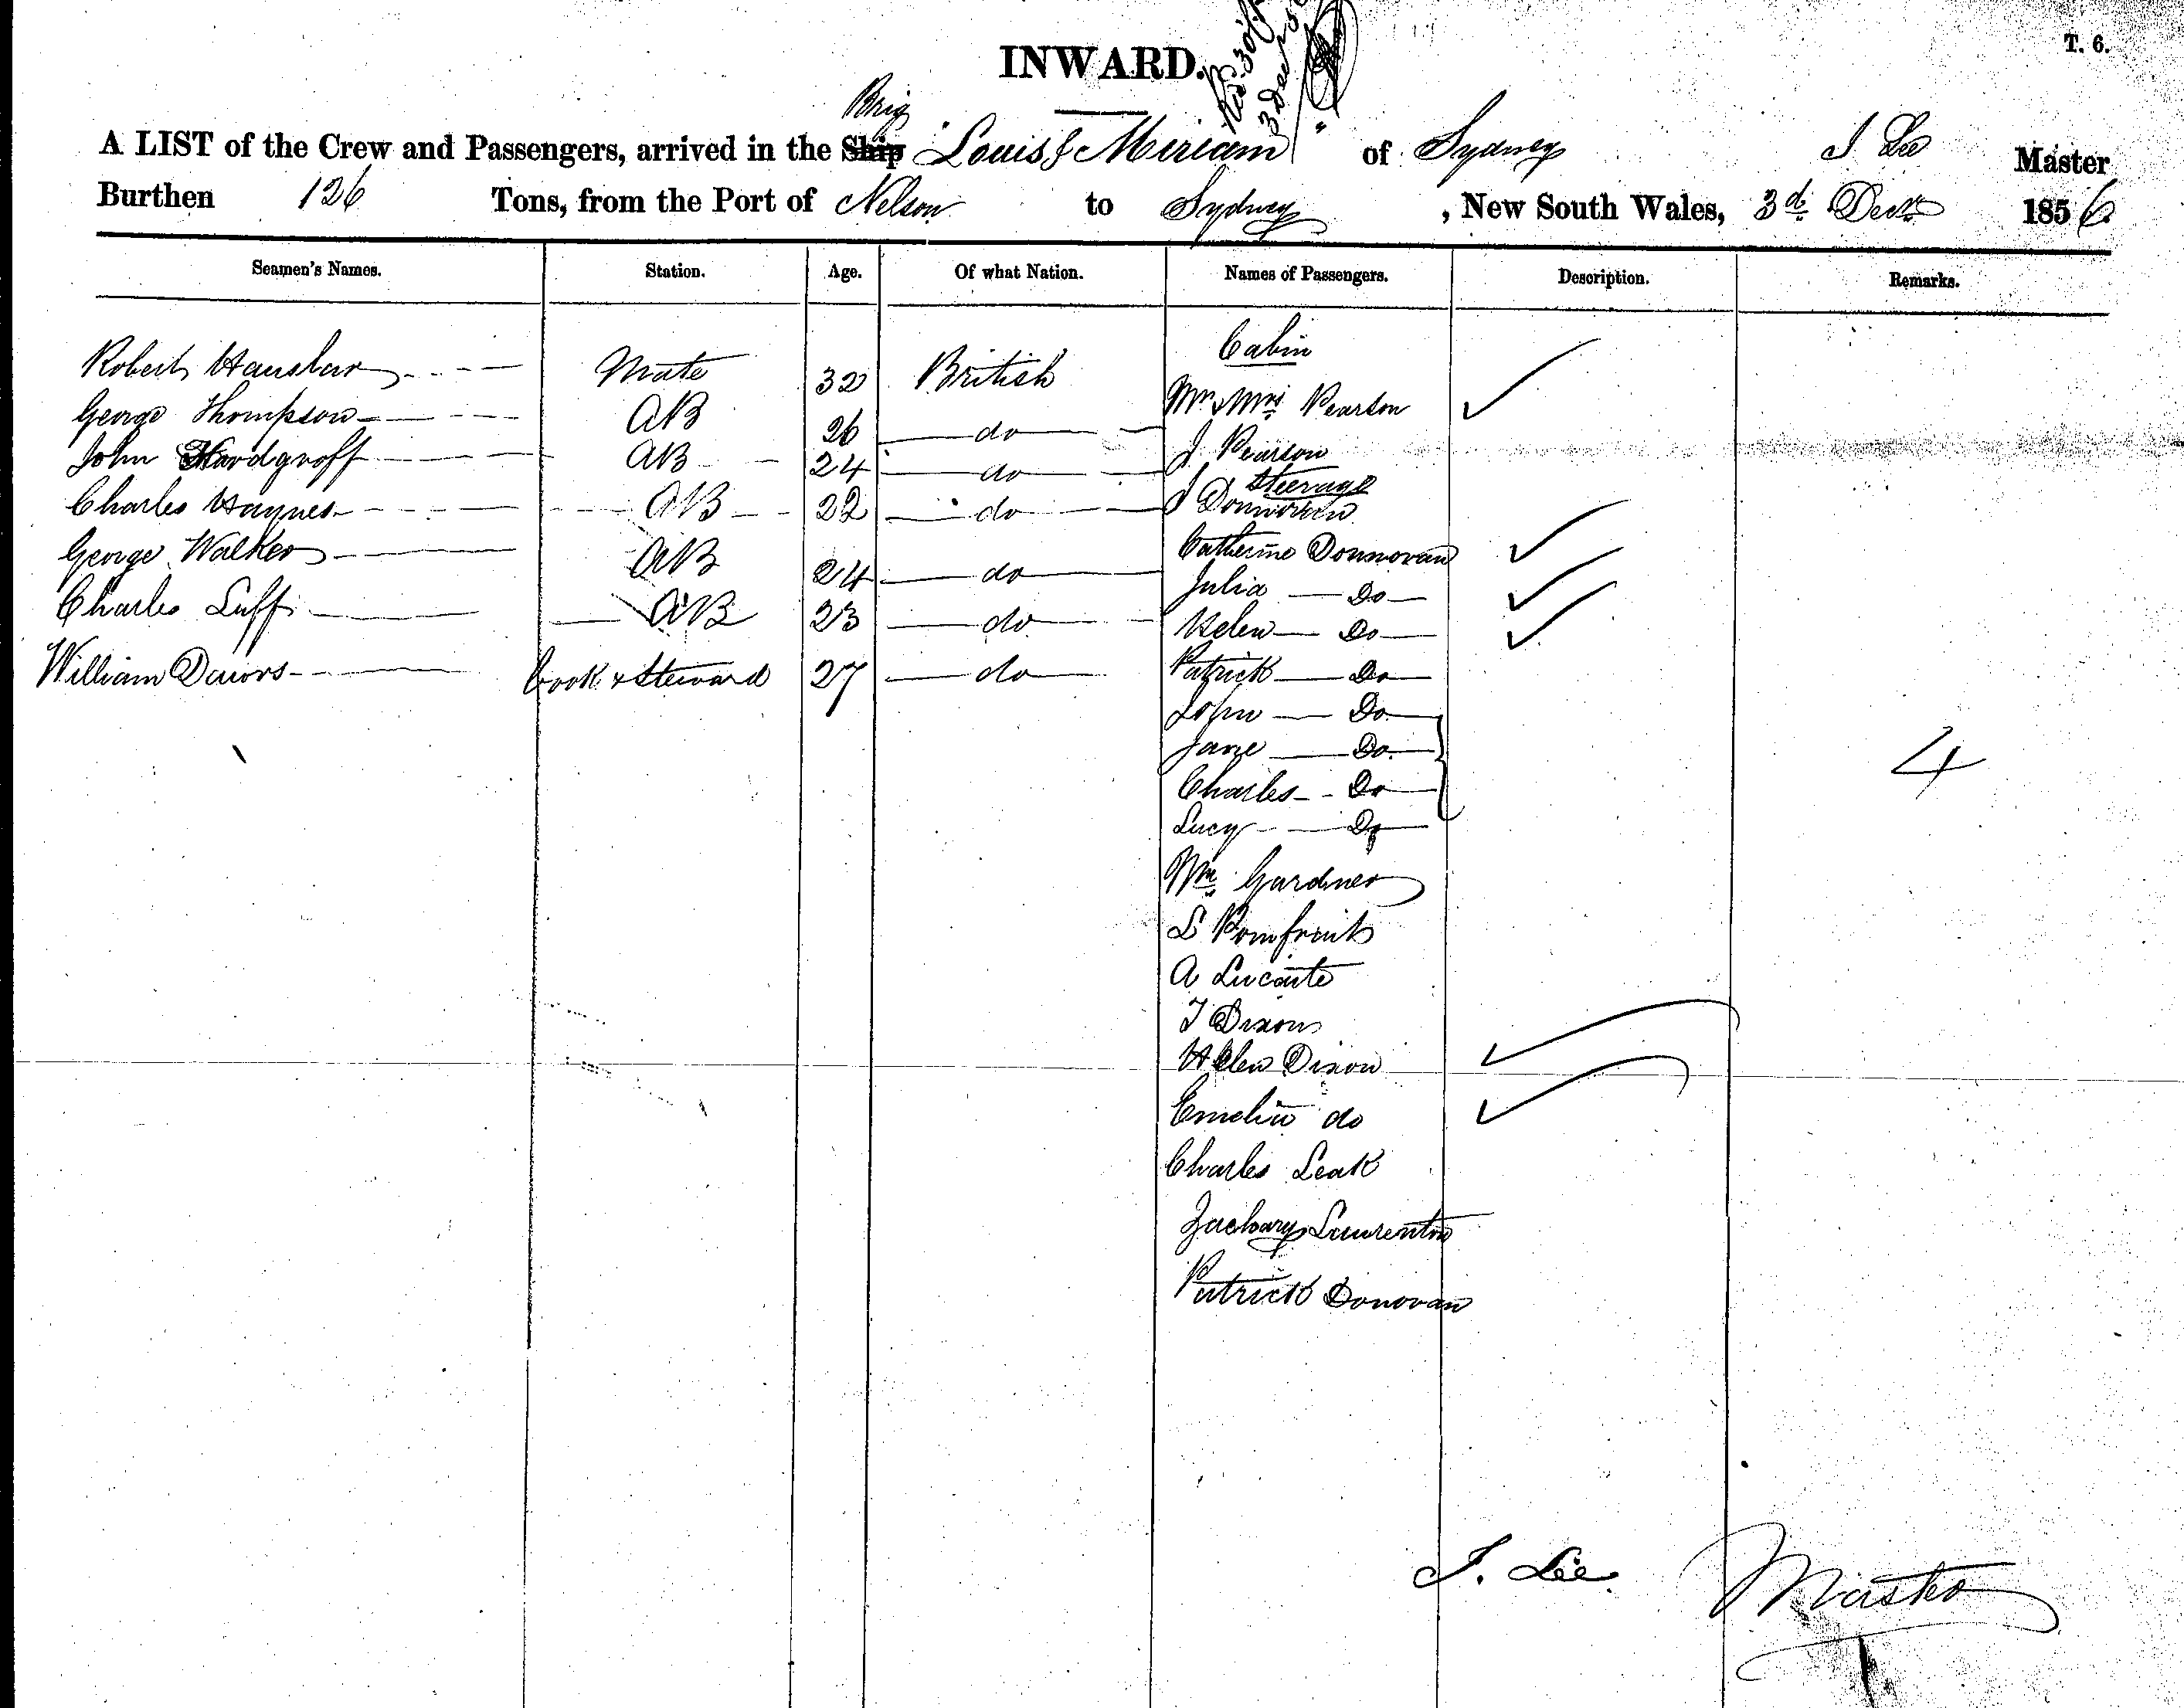 INWARD.
T. 6.
3 Dec
Brig
A LIST of the Crew and Passengers, arrived in the Ship Louis & Miriam of Sydney J Lee Master
Burthen 126 Tons, from the Port of Nelson to Sydney, New South Wales, 3d Decr 1856
Seamen's Names. Station. Age. Of what Nation. Names of Passengers. Description. Remarks.
Cabin
Robert Mate 32 British Mr & Mrs Pearson
George Thompson AB 26 do J. Pearson
Steerage
John Hardgroff AB 24 do
Charles Haynes AB 22 do J
George Walker AB 24 do Catherine Donnovan
Julia Do
Charles Luff AB 23 do Helen Do
William Cook & Steward 27 do Patrick Do
John Do
Jane Do
4
Charles Do
Lucy Do
Gardner
L
A
T Dixon
Helen Dixon
do
Charles Leak
Zachary
Patrick Donovan
J. Lee Master